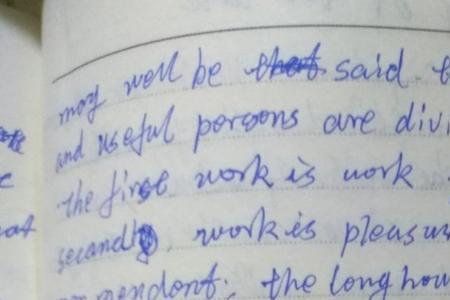 may well be said
and useful persons are divi
the first work is work
secondly work is pleasu
the long hou